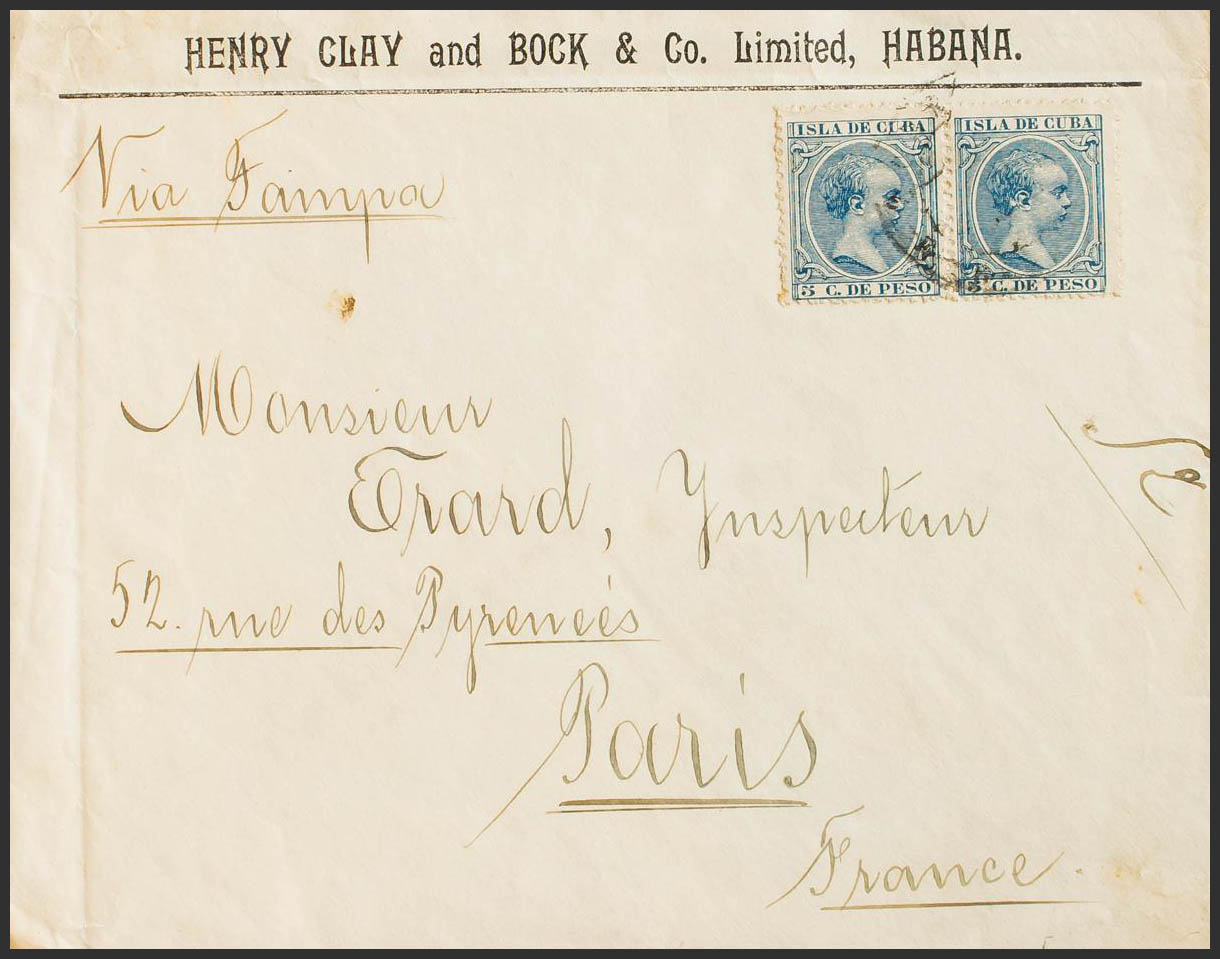 HENRY CLAY and BOCK & Co. Limited, HABANA.
Via Tampa
ISLA DE CUBA
5 C. DE PESO
ISLA DE CUBA
5 C. DE PESO
Monsieur
Erard, Ynspecteur
52. rue des Pyreneés
Paris
France.